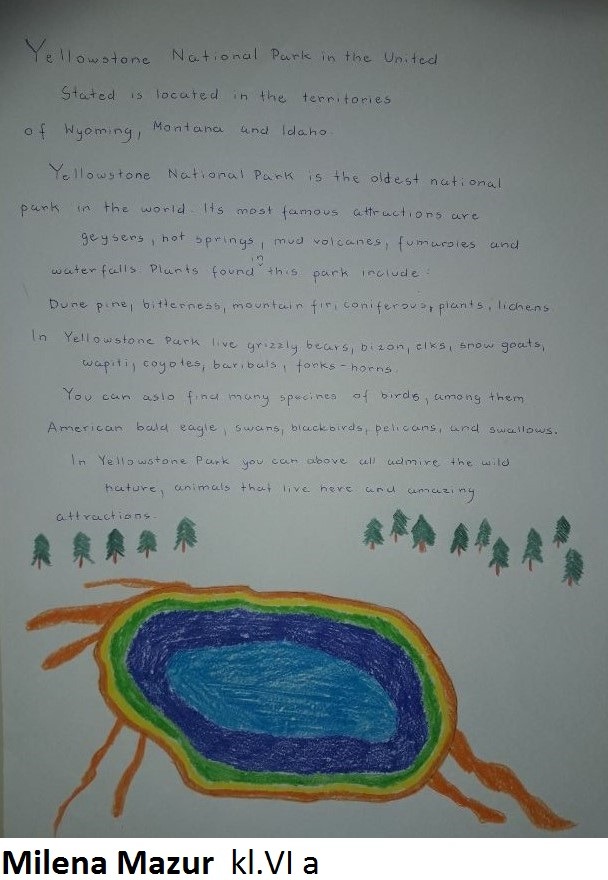 Yellowstone National Park in the United
Stated is located in the territories
of Wyoming, Montana and Idaho.
Yellowstone National Park is the oldest national
park in the world. Its most famous attractions are
geysers, hot springs, mud volcanes, fumaroles and
waterfalls. Plants found in this park include:
Dune pine, bitterness, mountain fir, coniferous, plants, lichens.
In Yellowstone Park live grizzly bears, bizon, elks, snow goats,
wapiti, coyotes, baribals, forks-horns.
You can aslo find many specines of birds, among them
American bald eagle, swans, blackbirds, pelicans, and swallows.
In Yellowstone Park you can above all admire the wild
nature, animals that live here and amazing
attractions.
Milena Mazur kl.VI a